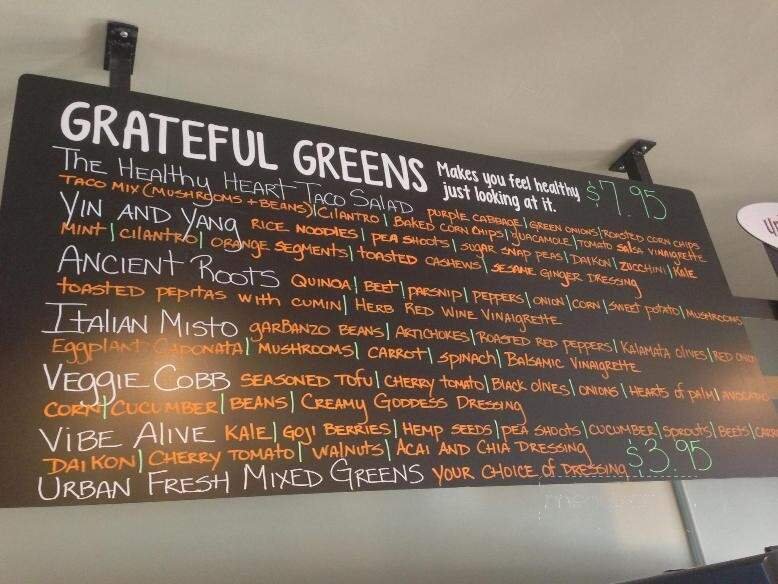 GRATEFUL GREENS Makes you feel healthy just looking at it. $7.95
THE HEALTHY HEART TACO SALAD PURPLE CABBAGE | GREEN ONIONS | ROASTED CORN CHIPS
TACO MIX (MUSHROOMS + BEANS) | CILANTRO | BAKED CORN CHIPS | GUACAMOLE | TOMATO SALSA VINAIGRETTE
YIN AND YANG RICE NOODLES | PEA SHOOTS | SUGAR SNAP PEAS | DAIKON | ZUCCHINI | KALE
MINT | CILANTRO | ORANGE SEGMENTS | TOASTED CASHEWS | SESAME GINGER DRESSING
ANCIENT ROOTS QUINOA | BEET | PARSNIP | PEPPERS | ONION | CORN | SWEET POTATO | MUSHROOMS
TOASTED PEPITAS WITH CUMIN | HERB RED WINE VINAIGRETTE
ITALIAN MISTO GARBANZO BEANS | ARTICHOKES | ROASTED RED PEPPERS | KALAMATA OLIVES | RED
EGGPLANT CAPONATA | MUSHROOMS | CARROT | SPINACH | BALSAMIC VINAIGRETTE
VEGGIE COBB SEASONED TOFU | CHERRY TOMATO | BLACK OLIVES | ONIONS | HEARTS OF PALM | AVOCADO
CORN | CUCUMBER | BEANS | CREAMY GODDESS DRESSING
VIBE ALIVE KALE | GOJI BERRIES | HEMP SEEDS | PEA SHOOTS | CUCUMBER | SPROUTS | BEETS |
DAIKON | CHERRY TOMATO | WALNUTS | ACAI AND CHIA DRESSING
URBAN FRESH MIXED GREENS YOUR CHOICE OF DRESSING $3.95